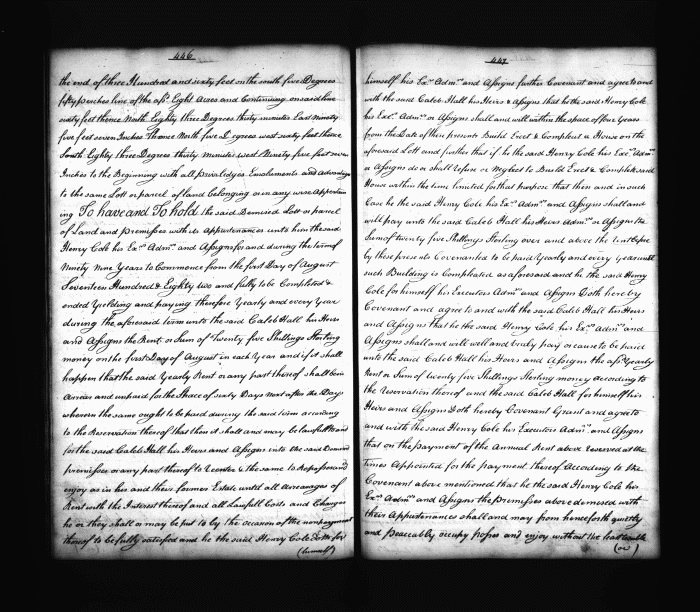 446
the end of three Hundred and sixty feet on the south five Degrees
fifty perches line of the afs.d Eight Acres and Continuing on said line
sixty feet thence North Eighty three Degrees thirty minutes East Ninety
five feet seven Inches Thence North five Degrees west sixty feet thence
South Eighty three Degrees thirty minutes west Ninety five feet seven
Inches to the Beginning with all priviledges Emoluments and advantages
to the same Lott or parcel of land belonging or in any wise Appertain
ing To have and To hold the said Demised Lott or parcel
of Land and premisses with its appurtenances unto him the said
Henry Cole his Ex.rs Adm.rs and Assigns for and during the term of
Ninety Nine Years to Commence from the first Day of August
Seventeen Hundred & Eighty two and fully to be Compleated &
ended Yielding and paying therefore Yearly and every Year
during the aforesaid term unto the said Caleb Hall his Heirs
and Assigns the Rent or Sum of twenty five Shillings Sterling
money on the first Day of August in each Year and if it shall
happen that the said Yearly Rent or any part thereof shall be in
Arrears and unpaid for the Space of sixty Days next after the Days
wherein the same ought to be paid during the said term according
to the Reservation thereof that then it shall and may be lawfull to and
for the said Caleb Hall his Heirs and Assigns into the said Demised
premisses or any part thereof to Reenter & the same to Repossess and
enjoy as in his and their former Estate until all arrearages of
Rent with the Interest thereof and all Lawfull Costs and Charges
he or they shall or may be put to by the occasion of the nonpayment
thereof to be fully satisfied and he the said Henry Cole doth for
(himself)
447
himself his Ex.rs Adm.rs and Assigns further Covenant and agree to and
with the said Caleb Hall his Heirs & Assigns that he the said Henry Cole
his Ex.rs Adm.rs or Assigns shall and will within the space of five Years
from the Date of these presents Build Erect & Compleat a House on the
aforesaid Lott and further that if he the said Henry Cole his Ex.rs Adm.rs
or Assigns do or shall refuse or neglect to Build Erect & Compleat said
House within the time limited for that purpose that then and in such
Case he the said Henry Cole his Ex.rs Adm.rs and Assigns shall and
will pay unto the said Caleb Hall his Heirs Adm.rs or Assigns the
Sum of twenty five Shillings Sterling over and above the Rent
by these presents Covenanted to be paid Yearly and every year until
such Building is Compleated as aforesaid and he the said Henry
Cole for himself his Executors Adm.rs and Assigns Doth hereby
Covenant and agree to and with the said Caleb Hall his Heirs
and Assigns that he the said Henry Cole his Ex.rs Adm.rs and
Assigns shall and will well and truly pay or cause to be paid
unto the said Caleb Hall his Heirs and Assigns the afs.d Yearly
Rent or Sum of twenty five Shillings Sterling money according to
the Reservation thereof and the said Caleb Hall for himself his
Heirs and Assigns Doth hereby Covenant Grant and agree to
and with the said Henry Cole his Executors Adm.rs and Assigns
that on the payment of the Annual Rent above Reserved at the
Times Appointed for the payment thereof According to the
Covenant above mentioned that he the said Henry Cole his
Ex.rs Adm.rs and Assigns the Premisses above demised with
their Appurtenances shall and may from henceforth quietly
and Peaceably occupy posses and enjoy without the least trouble
(or)